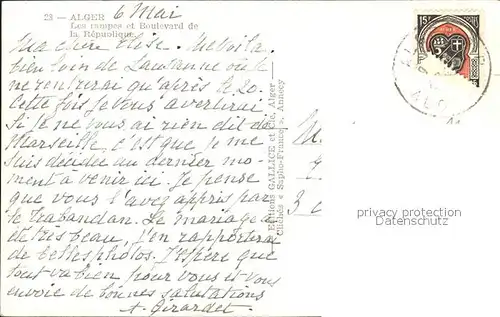 23 — ALGER
6 Mai
Les rampes et Boulevard de
la République
Ma chère Elise. Me voilà
bien loin de Lausanne où je
ne rentrerai qu'après le 20.
Cette fois je vous avertirai
Si je ne vous ai rien dit de
Marseille, c'est que je me
suis décidée au dernier mo-
ment à venir ici. Je pense
que vous l'avez appris par
le Le mariage a
été très beau, j'en rapporterai
de belles photos. J'espère que
tout va bien pour vous et vous
envoie de bonnes salutations
A. Girardet
Editions GALLICE et Cie, Alger
Clichés « Saphos-France », Annecy
15F
M
3
privacy protection
Datenschutz